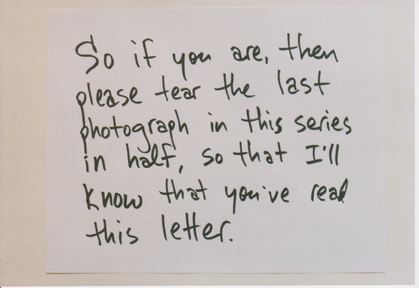 So if you are, then
please tear the last
photograph in this series
in half, so that I'll
know that you've read
this letter.